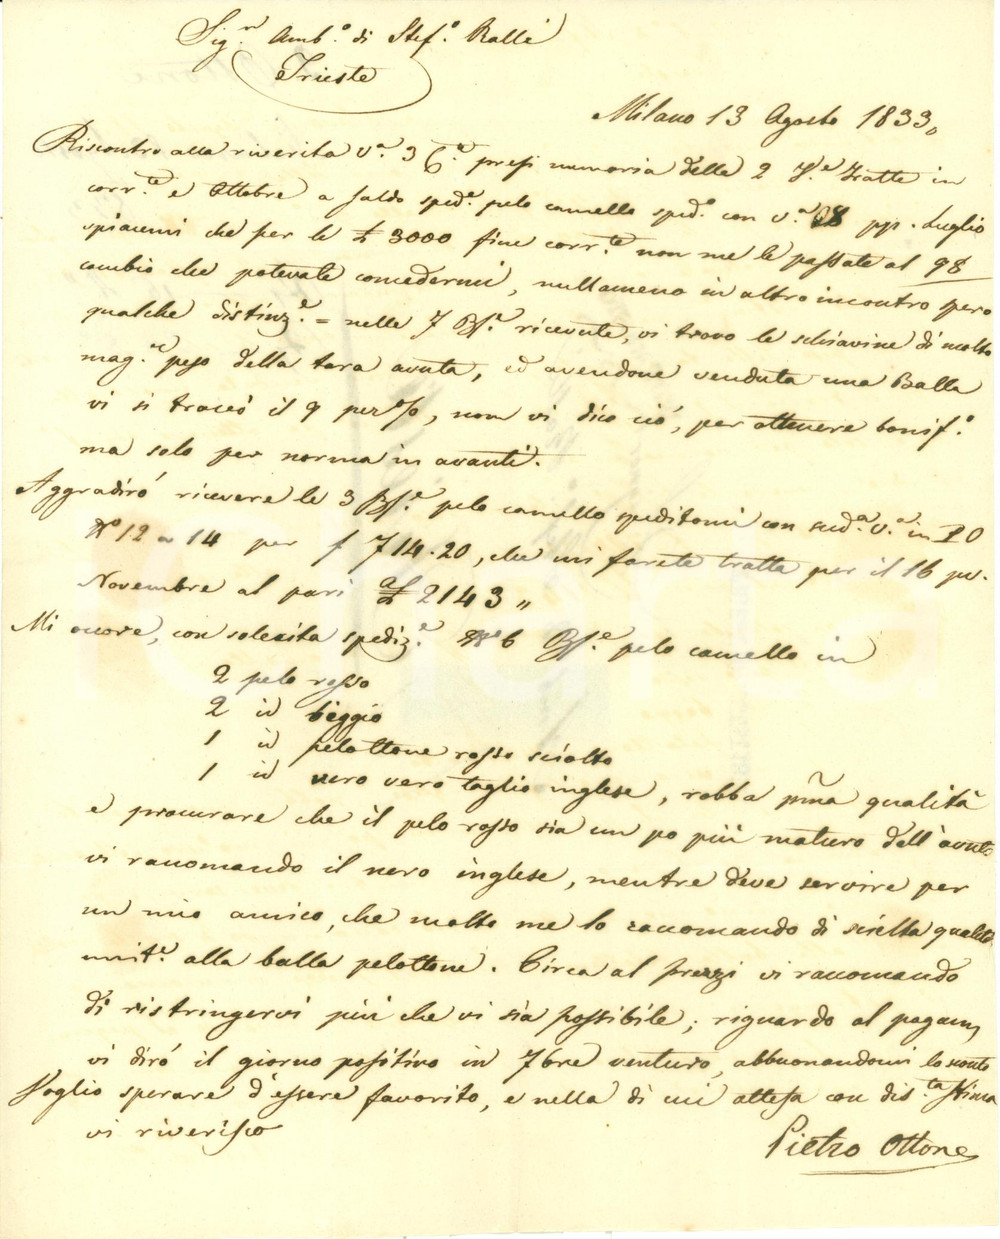 Sig.r Amb.o di Stef.o Ralli
Trieste
Milano 13 Agosto 1833.
Riscontro alla riverita V.a 3 C.te presi memoria delle 2 V.e tratte in
corr.te e Ottobre a saldo sped.e pelo camello sped.o con V.a 28 pp. Luglio
spiacemi che per le £ 3000 fine corr.te non me le passate al 98
cambio che potevate concedermi, nullameno in altro incontro spero
qualche distinz.e = nelle 7 B.e ricevute, vi trovo le schiavine di molto
mag.r peso della tara avuta, ed avendone venduta una Balla
vi si traccò il 9 per %, non vi dico ciò, per ottenere bonif.o
ma solo per norma in avanti.
Aggradirò ricevere le 3 B.e pelo camello speditomi con sud.a V.a in 10
N.o 12 a 14 per f 714.20, che mi farete tratta per il 16 pv.
Novembre al pari al £ 2143 "
Mi occore, con solecita spediz.e N.o 6 B.e pelo camello in
2 pelo rosso
2 id beggio
1 id pelottone rosso sciolto
1 id nero vero taglio inglese, robba pma qualità
e procurare che il pelo rosso sia un po più maturo dell'avuto
vi racomando il nero inglese, mentre deve servire per
un mio amico, che molto me lo racomando di scielta qualità
unit.e alla balla pelottone. Circa al prezzi vi racomando
di ristringervi più che vi sia possibile; riguardo al pagam,
vi dirò il giorno positivo in 7bre venturo, abbuonandomi lo sconto
Voglio sperare d'essere favorito, e nella di cui attesa con dis.ta stima
vi riverisco
Pietro Ottone